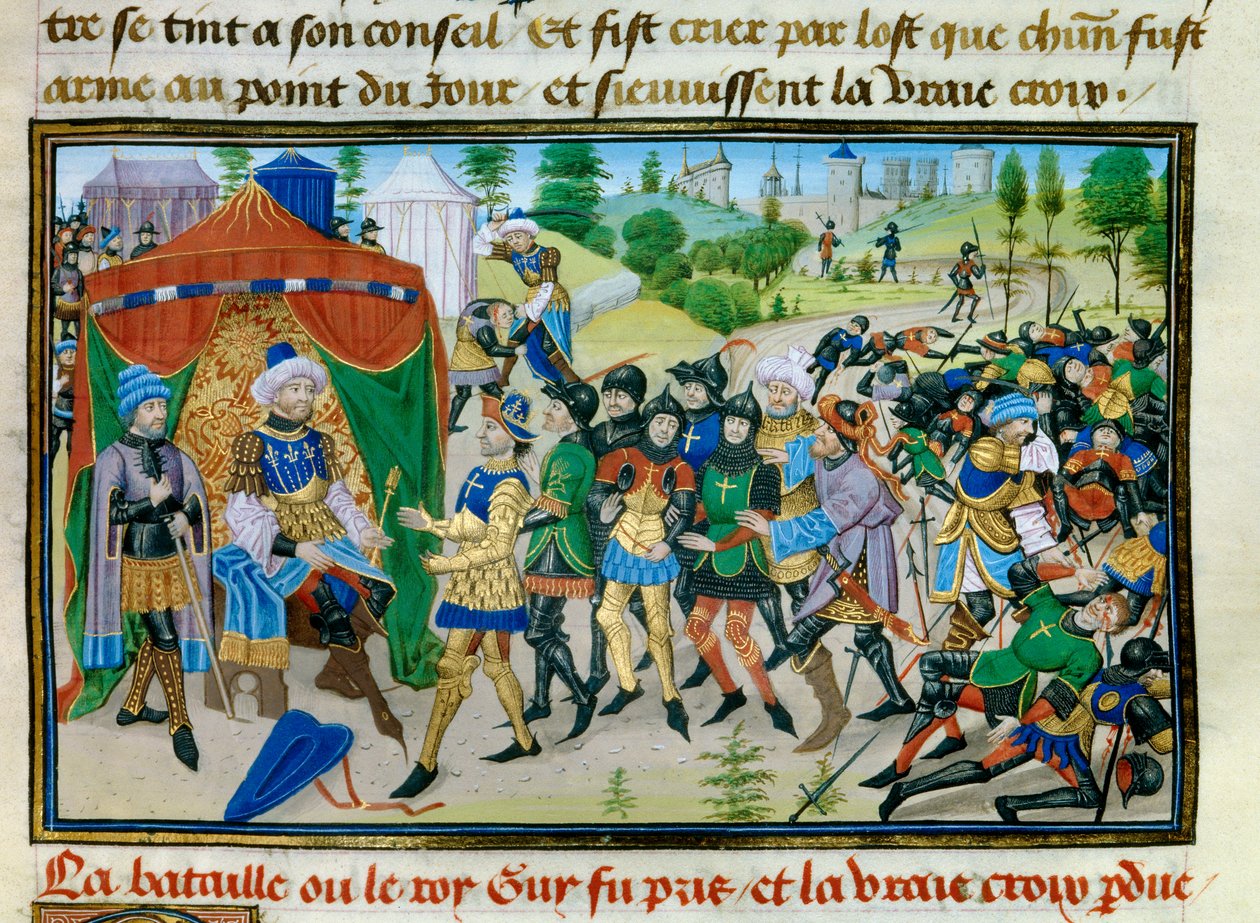 tre se tint a son conseil / Et fist crier par lost que chũn fust
arme au point du Jour / et sieuuissent la vraie croix .
La bataille ou le roy Guy fu pris / et la vraie croix pdue /